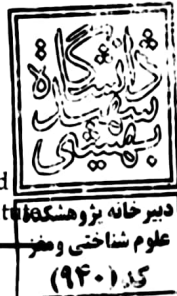 دانشگاه
شهید
بهشتی
d
tute
دبیرخانه پژوهشکده
علوم شناختی و مغز
کد (۹۴۰)